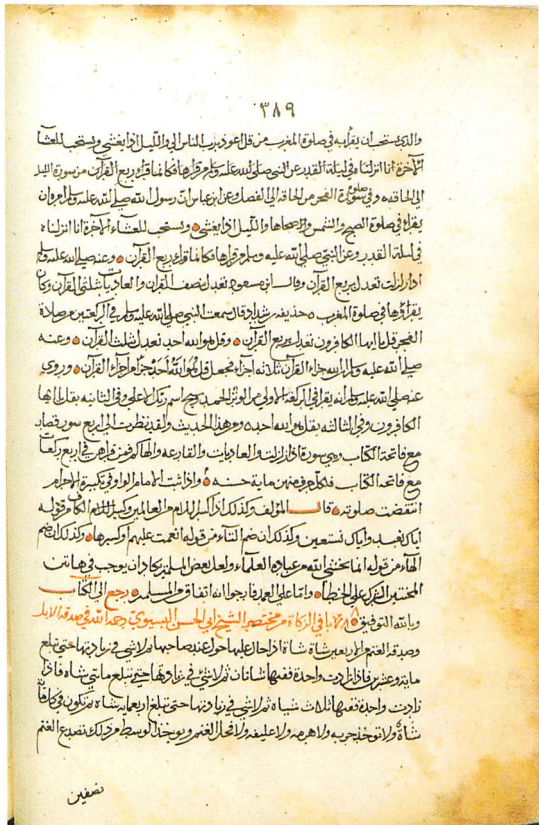 ٣٨٩
والذي يستحب ان يقرأ به في صلوة المغرب من قل اعوذ برب الناس الى والليل اذا يغشى ويستحب للعشاء
الآخرة انا انزلناه في ليلة القدر عن النبي صلى الله عليه وسلم من قرأها فكانما قرأ ربع القرآن من سورة
الى الحاقة وفي صلوة الفجر من الحاقة الى الفصل وعن ابن عباس ان رسول الله صلى الله عليه وسلم امر ان
يقرأ في صلوة الصبح والشمس وضحاها والليل اذا يغشى ويستحب للعشاء الآخرة انا انزلناه
في ليلة القدر وعن النبي صلى الله عليه وسلم من قرأها فكانما قرأ ربع القرآن وعنه صلى الله عليه وسلم
اذا زلزلت تعدل بربع القرآن وقال ابن مسعود تعدل نصف القرآن والعاديات ثلثي القرآن وكان
يقرأوها في صلوة المغرب حذيفه شداد قال سمعت النبي صلى الله عليه وسلم في الركعتين من صلاة
الفجر قل يا ايها الكافرون تعدل بربع القرآن وقل هو الله احد تعدل ثلث القرآن وعنه
صلى الله عليه وسلم ان الله جزاء القرآن ثلاثة اجزاء فجعل قل هو الله احد جزأ من اجزاء القرآن وروي
عنه صلى الله عليه وسلم انه يقرأ في الركعة الاولى من الوتر الحمد وسبح اسم ربك الاعلى وفي الثانيه بقل يا ايها
الكافرون وفي الثالثه بقل هو الله احد وهذا الحديث ولقد نظرت الى اربع سور قصار
مع فاتحة الكتاب وهي سورة اذا زلزلت والعاديات والقارعه والهاكم فمن قراهن في اربع ركعات
مع فاتحه الكتاب فله بكل حرف منهن مايه حسنه واذا ثبت الامام الواو في تكبيرة الاحرام
انتقضت صلوته قال المؤلف وكذلك ان كسر اللام من العالمين وكسر الكاف من قوله
اياك نعبد واياك نستعين وكذلك ان ضم التاء من قوله انعمت عليهم او كسرها وكذلك ان ضم
الهاء من قوله انما يخشى الله من عباده العلماء ولعل بعض المسلمين كاد ان يوجب في هاتين
على الخطأ واما على العمد فارجو انه اتفاق من المسلمين رجع الى الكتاب
وبالله التوفيق باب في الزكاة من مختصر الشيخ ابي الحسن البسيوي رحمه الله في صدقة الابل
وصدقه الغنم من اربعين شاة شاة اذا حال عليها حول عند صاحبها ثم لا شي في زيادتها حتى تبلغ
مايه وعشرين فاذا زادت واحدة ففيها شاتان ثم لا شي في زيادتها حتى تبلغ مايتي شاه فاذا
زادت واحدة ففيها ثلاث شياه ثم لا شي في زيادتها حتى تبلغ اربعمايه شاه ثم تكون في كل مائة
شاة ولا تؤخذ جربه ولا هرمه ولا عليفه ولا فحل الغنم ويوخذ الوسط من ذلك تصدع الغنم
نصفين